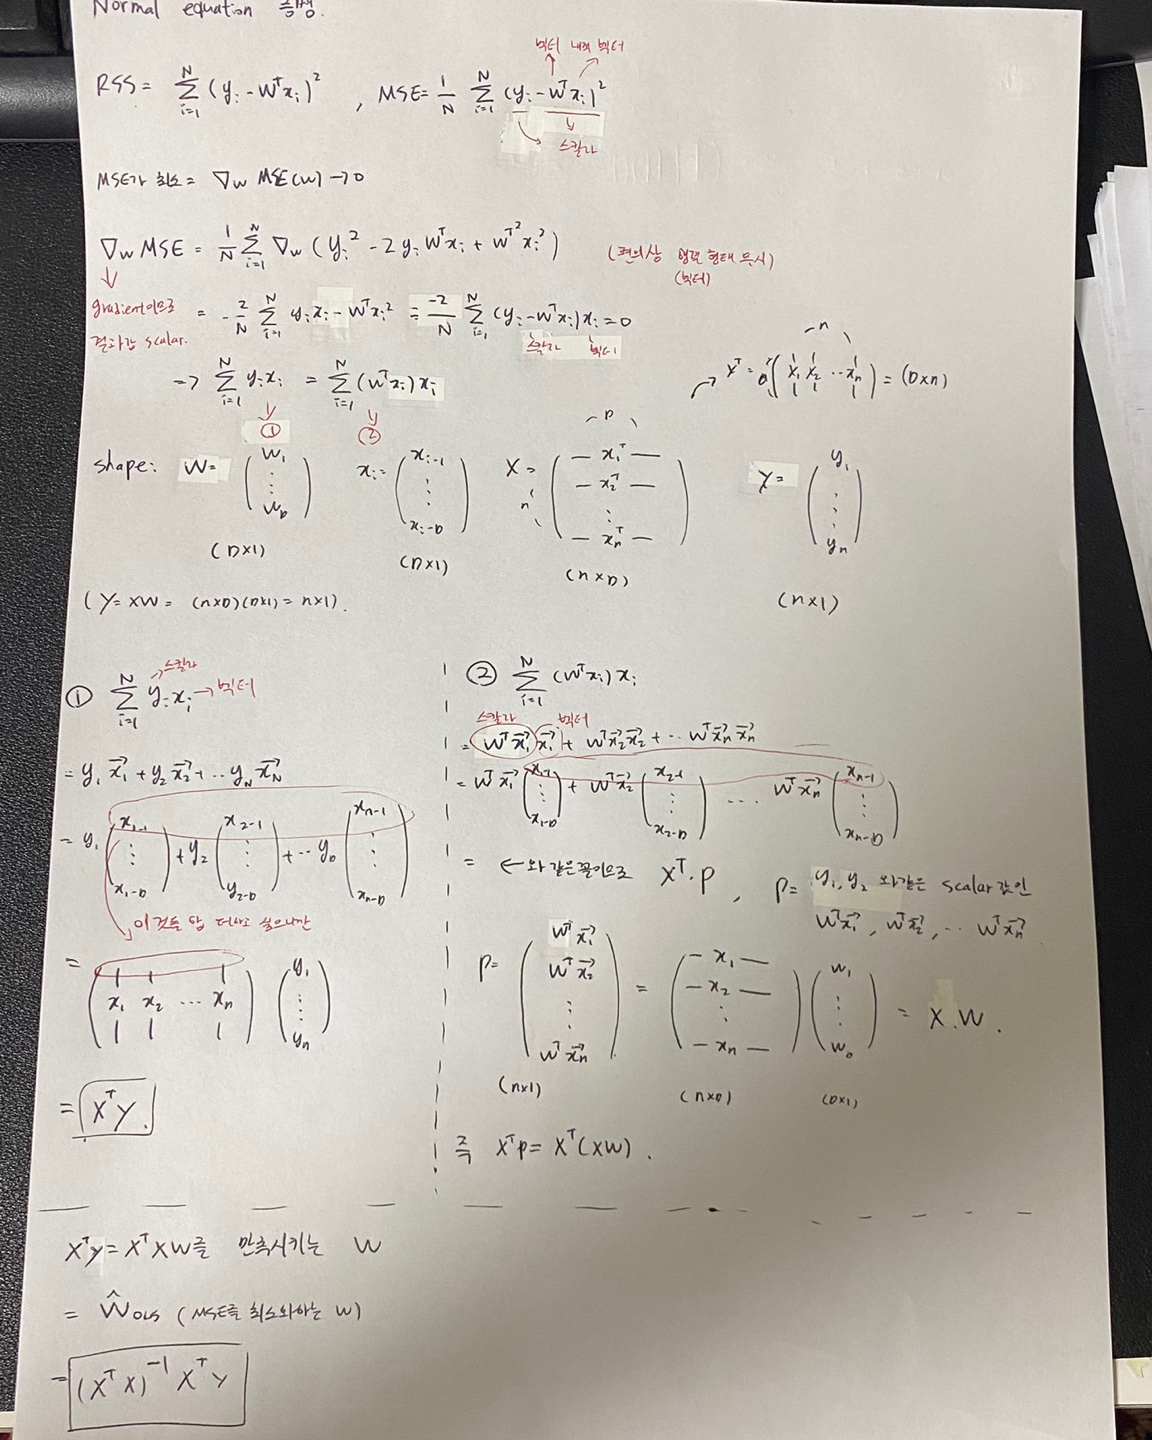 Normal equation 증명.
벡터 내적 벡터
RSS = Σ_{i=1}^{N} (y_i - W^T x_i)^2 , MSE = 1/N Σ_{i=1}^{N} (y_i - W^T x_i)^2
스칼라
MSE가 최소 = ∇_W MSE(W) → 0
∇_W MSE = 1/N Σ_{i=1}^{N} ∇_W (y_i^2 - 2 y_i W^T x_i + W^{T2} x_i^2) (편의상 행렬 형태 무시)
(벡터)
gradient이므로
결과값 scalar.
= -2/N Σ_{i=1}^{N} y_i x_i - W^T x_i^2 = -2/N Σ_{i=1}^{N} (y_i - W^T x_i) x_i = 0
스칼라 벡터
=> Σ_{i=1}^{N} y_i x_i = Σ_{i=1}^{N} (W^T x_i) x_i
① ②
n
X^T = D ( x_1 x_2 ... x_n ) = (D×n)
shape: W = ( W_1 ⋮ W_D ) x_i = ( x_{i-1} ⋮ x_{i-D} ) X = ( — x_1^T — — x_2^T — ⋮ — x_n^T — ) Y = ( y_1 ⋮ y_n )
D
n
(D×1) (D×1) (n×D) (n×1)
(Y = XW = (n×D)(D×1) = n×1).
① Σ_{i=1}^{N} y_i x_i
스칼라
벡터
= y_1 x_1 + y_2 x_2 + .. y_N x_N
= y_1 ( x_{1-1} ⋮ x_{1-D} ) + y_2 ( x_{2-1} ⋮ y_{2-D} ) + .. y_D ( x_{n-1} ⋮ x_{n-D} )
이것들 다 더하고 싶으니깐
= ( x_1 x_2 ... x_n ) ( y_1 ⋮ y_n )
= X^T Y.
② Σ_{i=1}^{N} (W^T x_i) x_i
스칼라 벡터
= W^T x_1 x_1 + W^T x_2 x_2 + .. W^T x_n x_n
= W^T x_1 ( x_{1-1} ⋮ x_{1-D} ) + W^T x_2 ( x_{2-1} ⋮ x_{2-D} ) ... W^T x_n ( x_{n-1} ⋮ x_{n-D} )
= ← 와 같은꼴이므로 X^T · P , P = y_1, y_2 와같은 scalar 값인
W^T x_1, W^T x_2, ... W^T x_n
P = ( W^T x_1 W^T x_2 ⋮ W^T x_n ) = ( — x_1 — — x_2 — ⋮ — x_n — ) ( w_1 ⋮ w_D ) = X.W.
(n×1) (n×D) (D×1)
즉 X^T P = X^T (XW).
X^T y = X^T X W를 만족시키는 W
= Ŵ_OLS (MSE를 최소화하는 W)
= (X^T X)^{-1} X^T Y